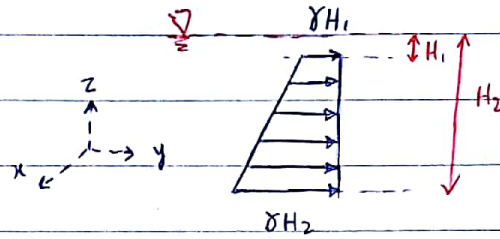 γH₁
H₁
H₂
z
y
x
γH₂